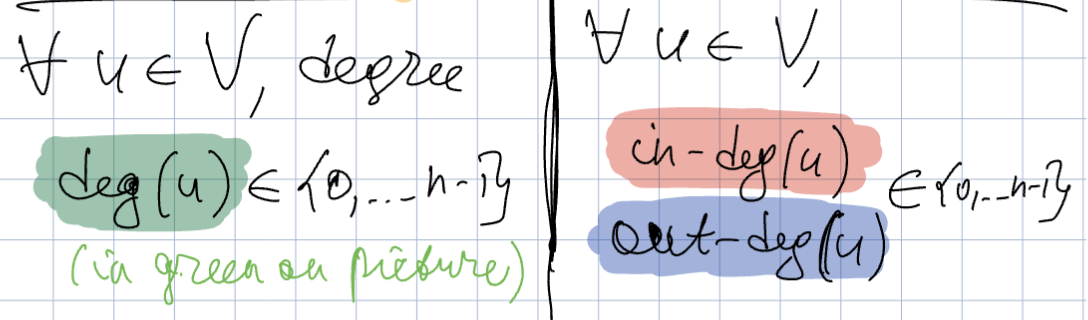 ∀ u ∈ V, degree
deg(u) ∈ {0,... n-1}
(in green on picture)
∀ u ∈ V,
in-deg(u)
out-deg(u)
∈ {0,... n-1}